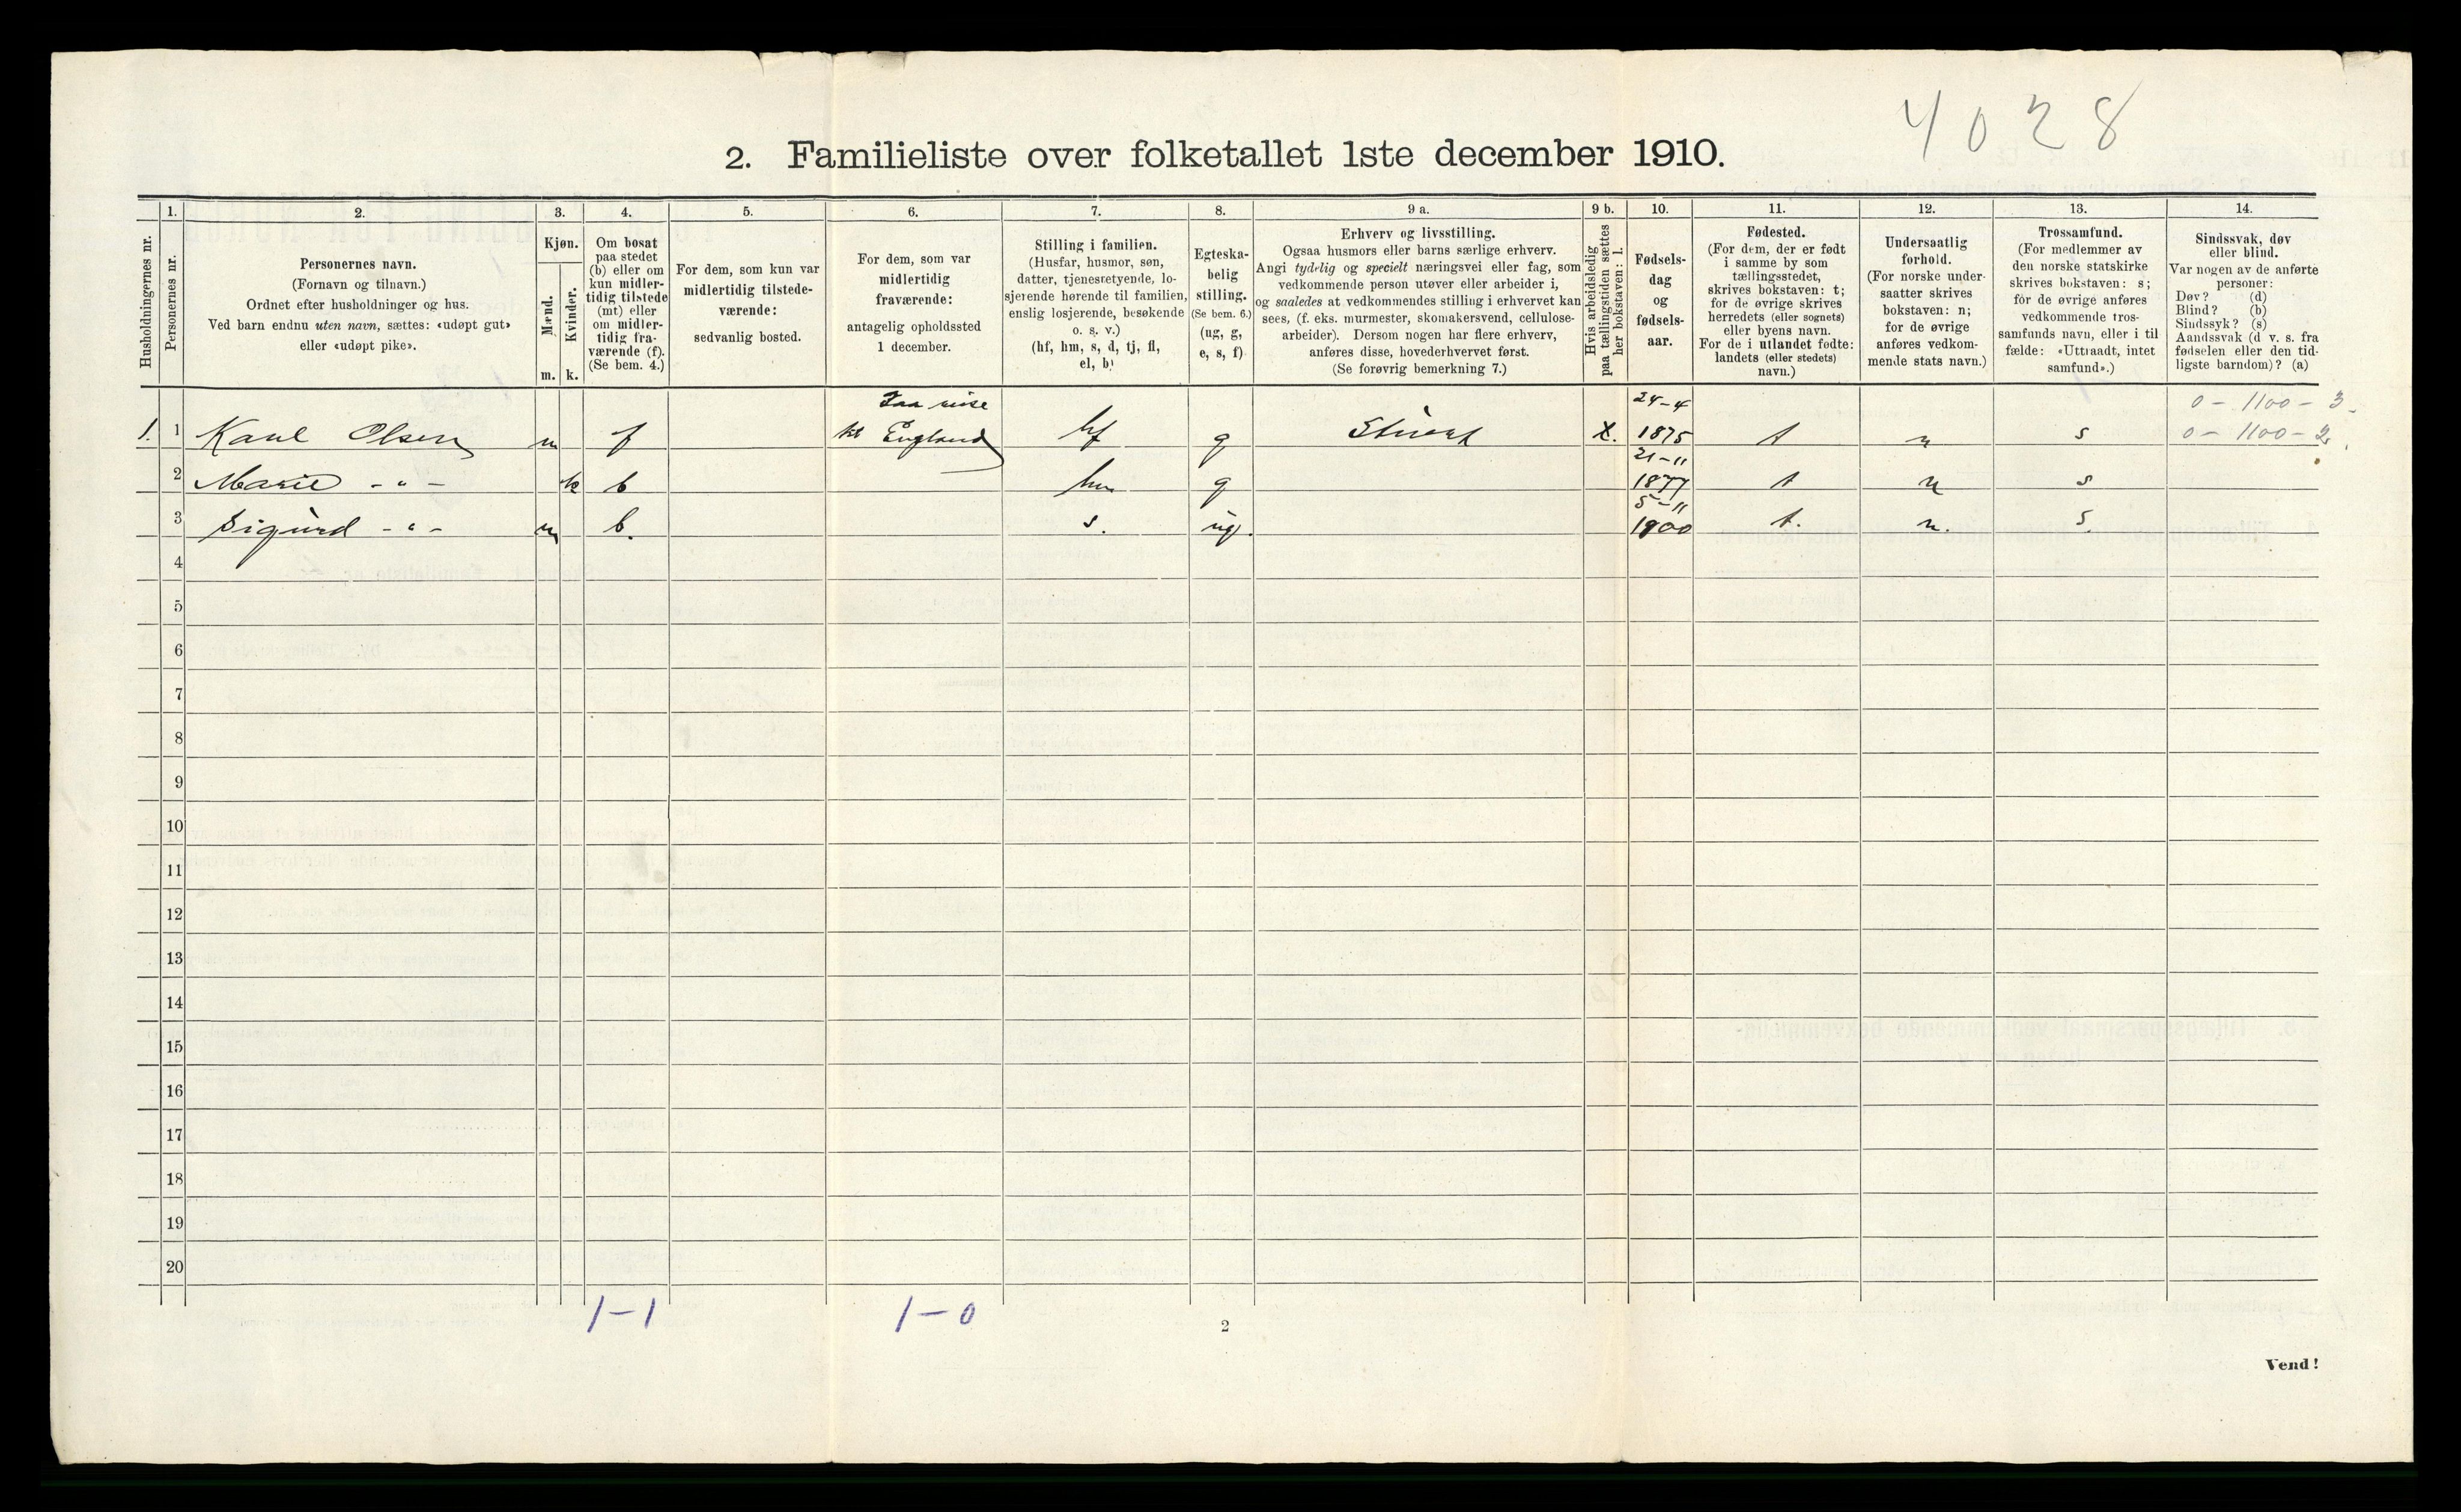 4028
2. Familieliste over folketallet 1ste december 1910.
Husholdningernes nr.
1.
Personernes nr.
2.
Personernes navn.
(Fornavn og tilnavn.)
Ordnet efter husholdninger og hus.
Ved barn endnu uten navn, sættes: «udøpt gut»
eller «udøpt pike».
3.
Kjøn.
Mænd.
Kvinder.
m. k.
4.
Om bosat
paa stedet
(b) eller om
kun midler-
tidig tilstede
(mt) eller
om midler-
tidig fra-
værende (f).
(Se bem. 4.)
5.
For dem, som kun var
midlertidig tilstede-
værende:
sedvanlig bosted.
6.
For dem, som var
midlertidig
fraværende:
antagelig opholdssted
1 december.
7.
Stilling i familien.
(Husfar, husmor, søn,
datter, tjenestetyende, lo-
sjerende hørende til familien,
enslig losjerende, besøkende
o. s. v.)
(hf, hm, s, d, tj, fl,
el, b)
8.
Egteska-
belig
stilling.
(Se bem. 6.)
(ug, g,
e, s, f)
9 a.
Erhverv og livsstilling.
Ogsaa husmors eller barns særlige erhverv.
Angi tydelig og specielt næringsvei eller fag, som
vedkommende person utøver eller arbeider i,
og saaledes at vedkommendes stilling i erhvervet kan
sees, (f. eks. murmester, skomakersvend, cellulose-
arbeider). Dersom nogen har flere erhverv,
anføres disse, hovederhvervet først.
(Se forøvrig bemerkning 7.)
9 b.
Hvis arbeidsledig
paa tællingstiden sættes
her bokstaven: l.
10.
Fødsels-
dag
og
fødsels-
aar.
11.
Fødested.
(For dem, der er født
i samme by som
tællingsstedet,
skrives bokstaven: t;
for de øvrige skrives
herredets (eller sognets)
eller byens navn.
For de i utlandet fødte:
landets (eller stedets)
navn.)
12.
Undersaatlig
forhold.
(For norske under-
saatter skrives
bokstaven: n;
for de øvrige
anføres vedkom-
mende stats navn.)
13.
Trossamfund.
(For medlemmer av
den norske statskirke
skrives bokstaven: s;
for de øvrige anføres
vedkommende tros-
samfunds navn, eller i til
fælde: «Uttraadt, intet
samfund».)
14.
Sindssvak, døv
eller blind.
Var nogen av de anførte
personer:
Døv? (d)
Blind? (b)
Sindssyk? (s)
Aandssvak (d. v. s. fra
fødselen eller den tid-
ligste barndom)? (a)
Paa reise 24-4 0 - 1100 - 3
1. 1 Karl Olsen m f til England hf g Stuert X. 1875 t n s 0 - 1100 - 2
21-11
2 Marie - " - k b hm g 1877 t n s
5-11
3 Sigurd - " - m b. s. ug. 1900 t. n. s.
4
5
6
7
8
9
10
11
12
13
14
15
16
17
18
19
20
1-1 1-0
2
Vend!